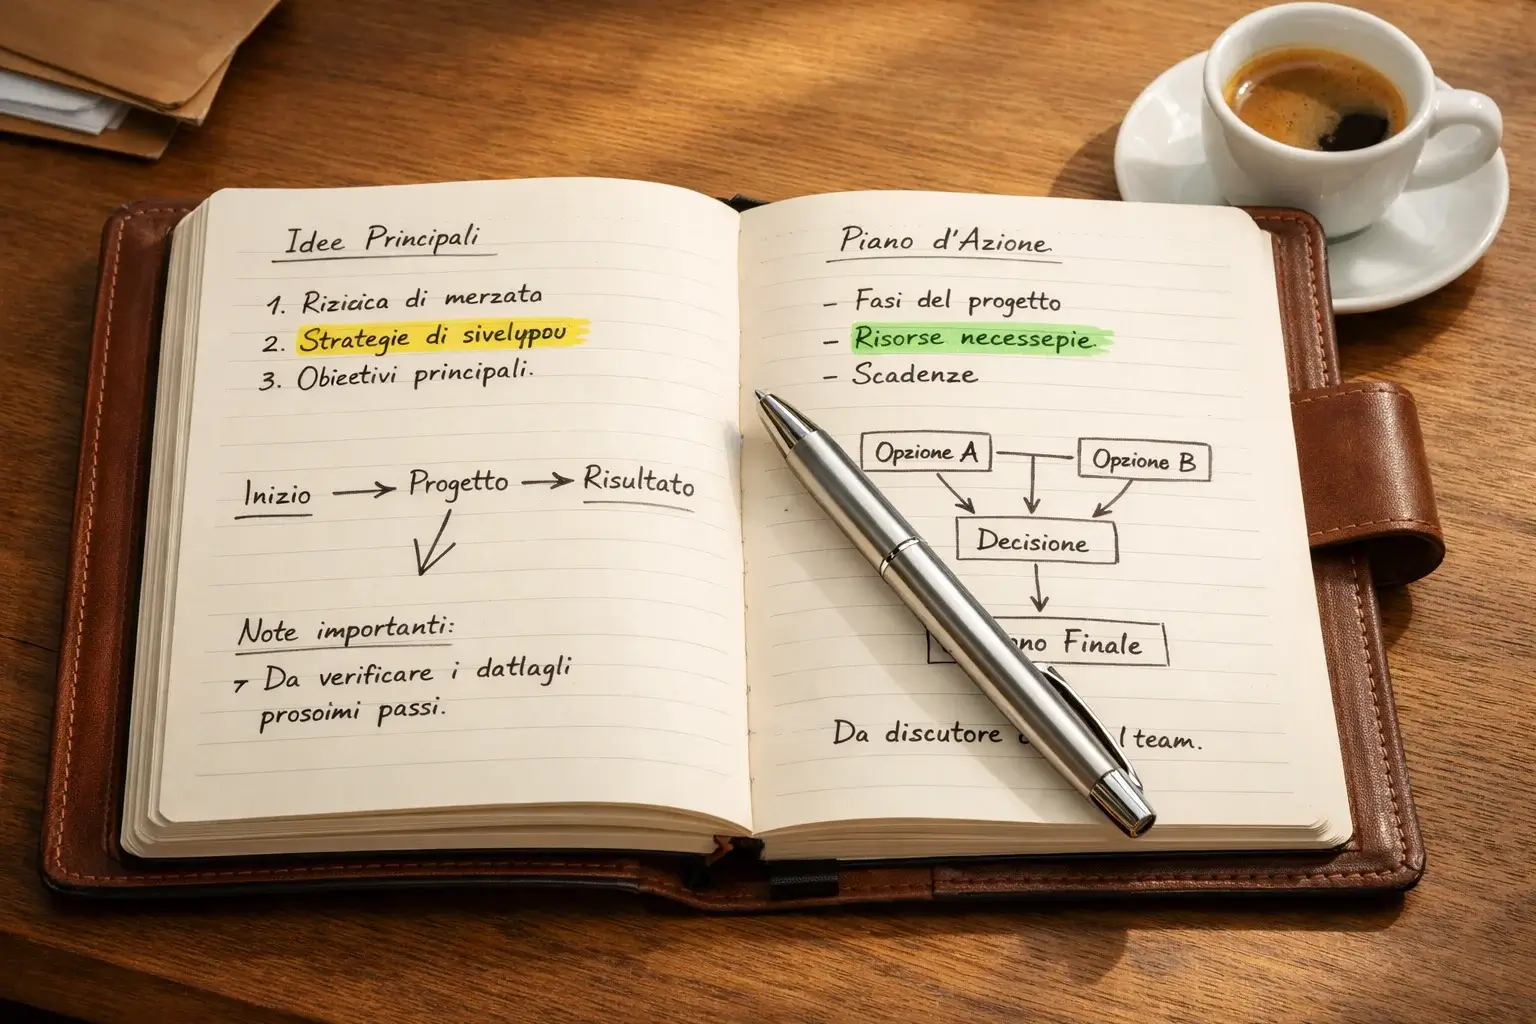 Idee Principali
1. Rizicica di merzata
2. Strategie di sivelypou
3. Obietivi principali.
Inizio → Progetto → Risultato
Note importanti:
Da verificare i datlagli
prosoimi passi.
Piano d'Azione
– Fasi del progetto
– Risorse necessepie.
– Scadenze
Opzione A
Opzione B
Decisione
Finale
Da discutore team.